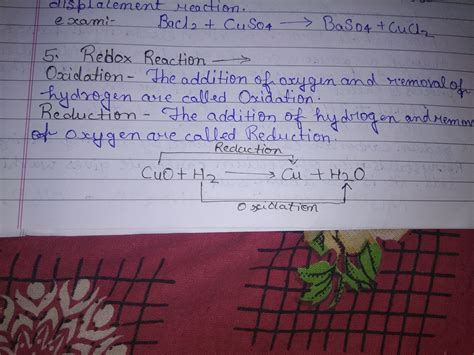 displacement reaction.
exam:- BaCl2 + CuSO4 → BaSO4 + CuCl2
5. Redox Reaction →
Oxidation - The addition of oxygen and removal of
hydrogen are called Oxidation.
Reduction - The addition of hydrogen and remov
of oxygen are called Reduction.
Reduction
CuO + H2 → Cu + H2O
Oxidation